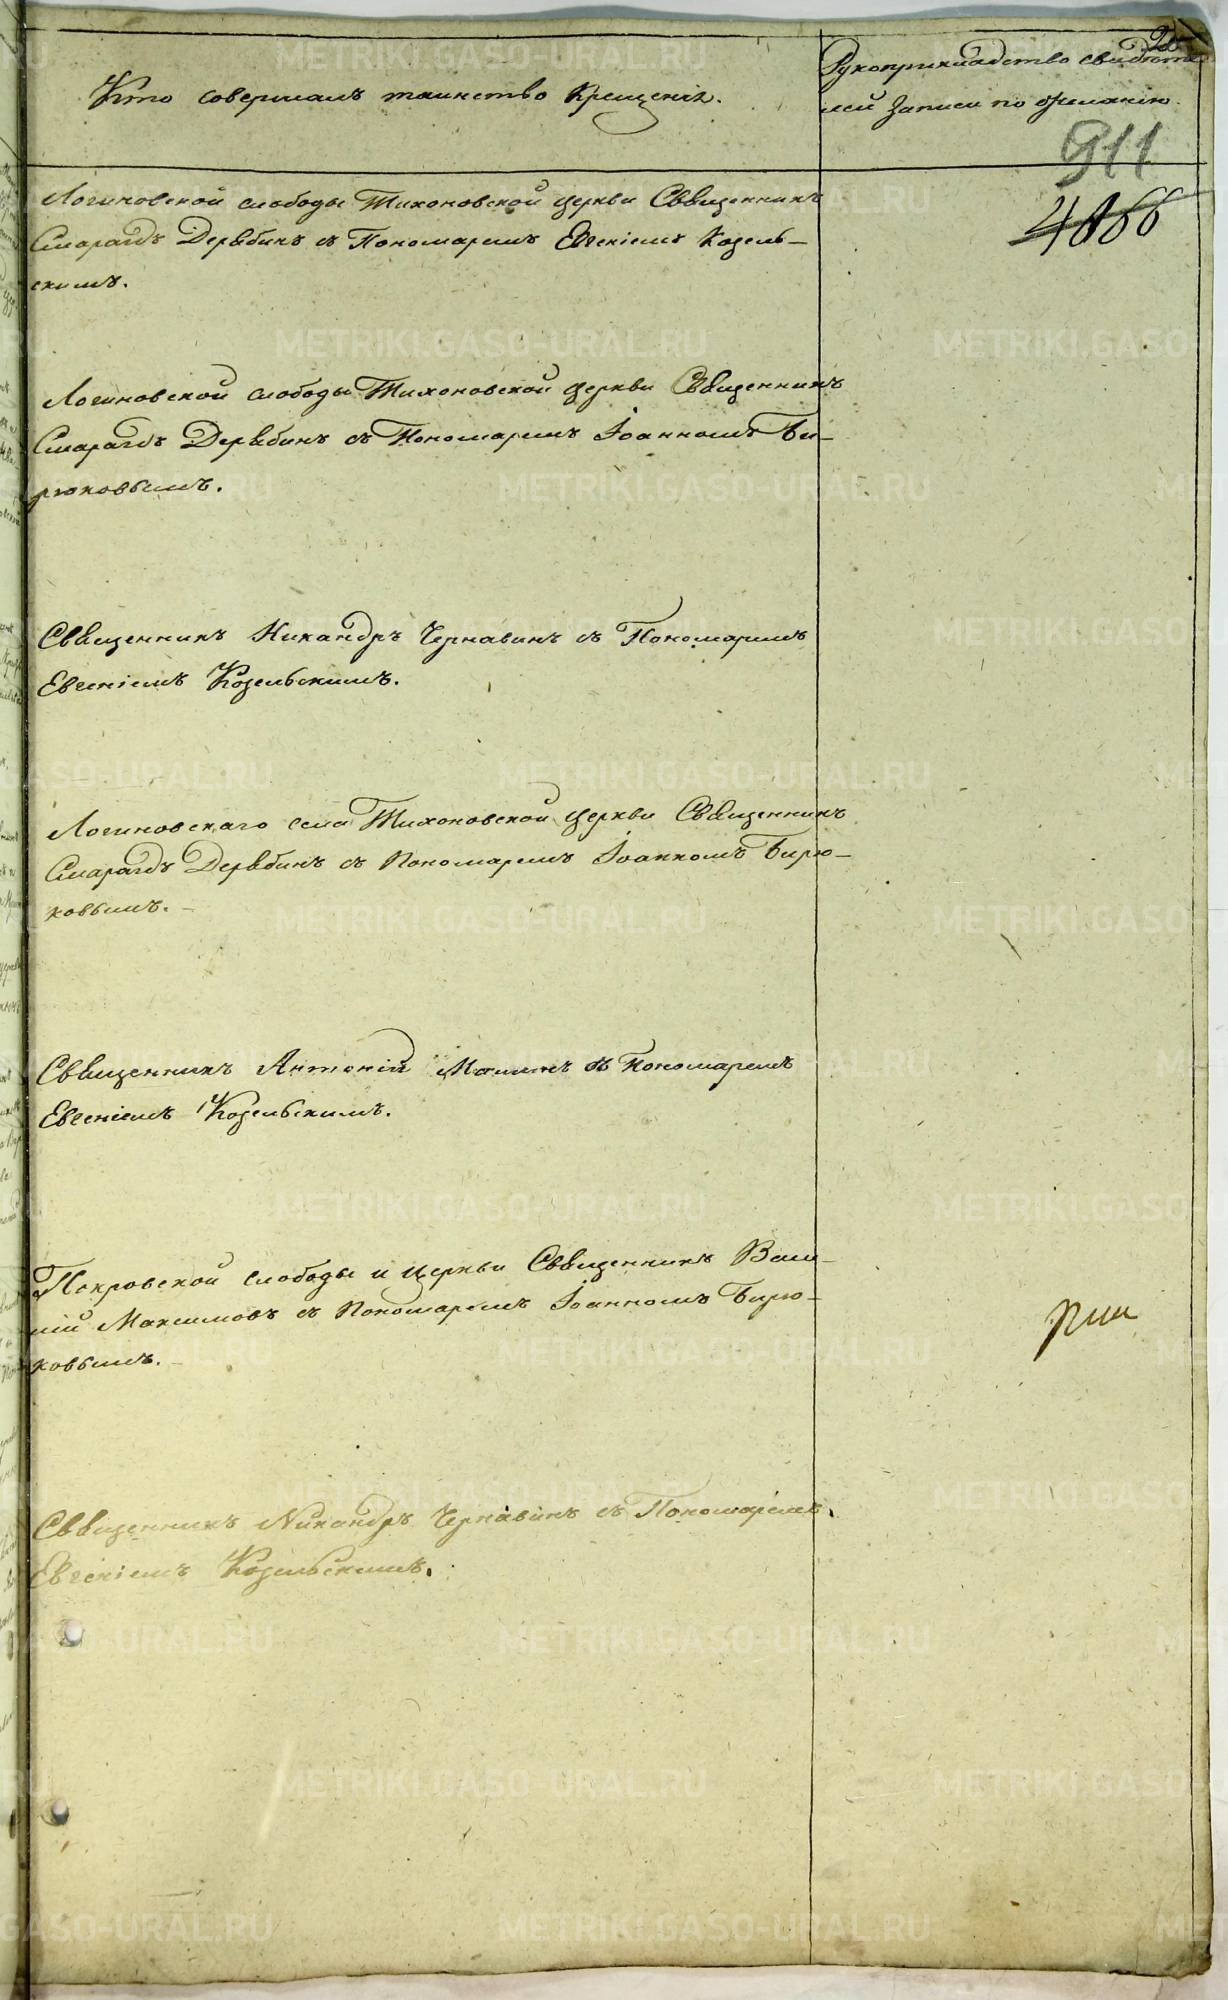 Кто совершалъ таинство крещенія.
Рукоприкладство свидѣте
лей записи по желанію.
911
Логиновской слободы Тихоновской церкви Священникъ
Смарагдъ Дерябинъ съ Пономаремъ Евгеніемъ Козель-
скимъ.
Логиновской слободы Тихоновской церкви Священникъ
Смарагдъ Дерябинъ съ Пономаремъ Іоанномъ Би-
рюковымъ.
Священникъ Никандръ Чернавинъ съ Пономаремъ
Евгеніемъ Козельскимъ.
Логиновскаго села Тихоновской церкви Священникъ
Смарагдъ Дерябинъ съ Пономаремъ Іоанномъ Бирю-
ковымъ. -
Священникъ Антоній съ Пономаремъ
Евгеніемъ Козельскимъ.
Покровской слободы и церкви Священникъ Васи-
лій Максимовъ съ Пономаремъ Іоанномъ Бирю-
ковымъ. -
Священникъ Никандръ Чернавинъ съ Пономаремъ
Евгеніемъ Козельскимъ.
METRIKI.GASO-URAL.RU